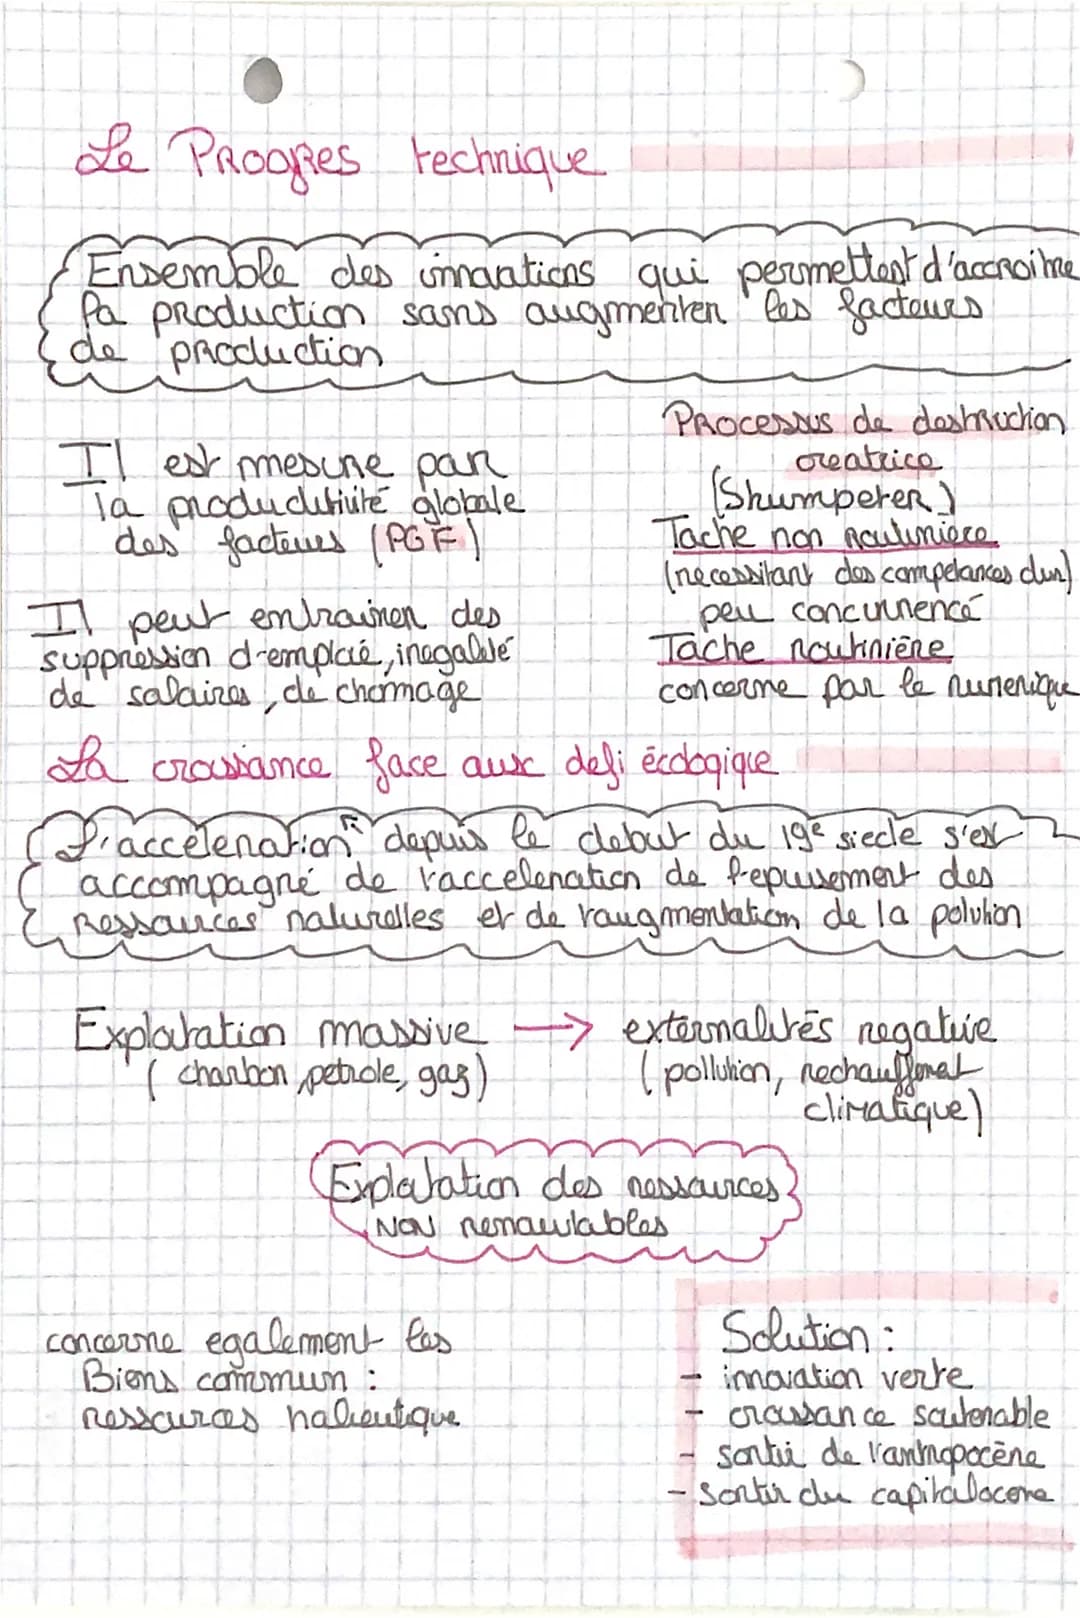 Le PROGRES technique
Ensemble des innovations qui permettent d'accroitre
la production sans augmenter les facteurs
de production
Il est mesure par
la productivité globale
des facteurs (PGF)
Il peut entrainer des
suppression d'emploi, inegalité
de salaires, de chomage
Processus de destruction
creatrice
(Shumpeter)
Tache non routiniere
(necessitant des competances dur)
peu concurrencé
Tache routinière
concerne par le numerique
La croissance face aux defi écologique
L'acceleration depuis le debut du 19e siecle s'est
accompagné de l'acceleration de l'epuisement des
Ressources naturelles et de l'augmentation de la polution
Exploitation massive → externalités negative
(charbon, petrole, gaz)
(pollution, rechauffemat
climatique)
Exploitation des ressources
NON renouvlables
concerne egalement les
Biens commun :
ressources halieutique
Solution :
- innovation verte
- croissance soutenable
- sortir de l'antropocène
- Sortir du capitalocene